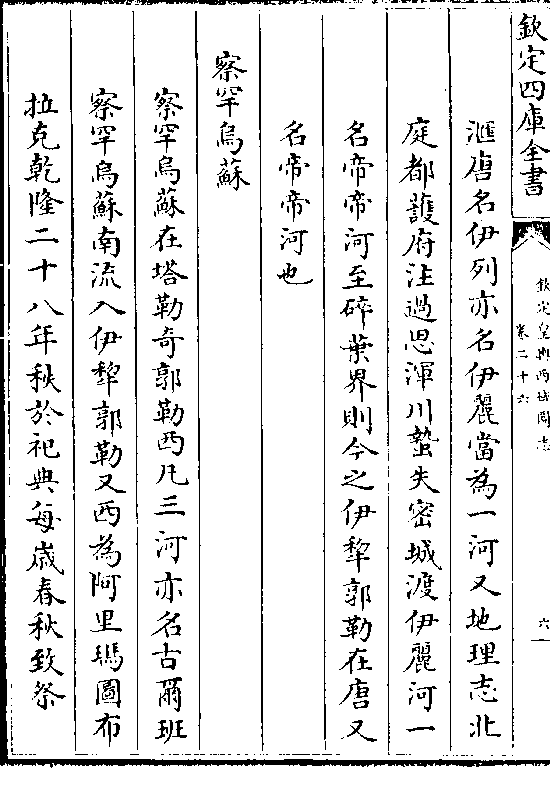 欽定四庫全書
欽定皇輿西域圖志
卷二十六
六
滙唐名伊列亦名伊麗當為一河又地理志北
庭都䕶府注過思渾川蟄失密城渡伊麗河一
名帝帝河至碎葉界則今之伊犂郭勒在唐又
名帝帝河也
察罕烏蘇
察罕烏蘇在塔勒奇郭勒西凡三河亦名古爾班
察罕烏蘇南流入伊犂郭勒又西為阿里瑪圖布
拉克乾隆二十八年秋於祀典每歲春秋致祭